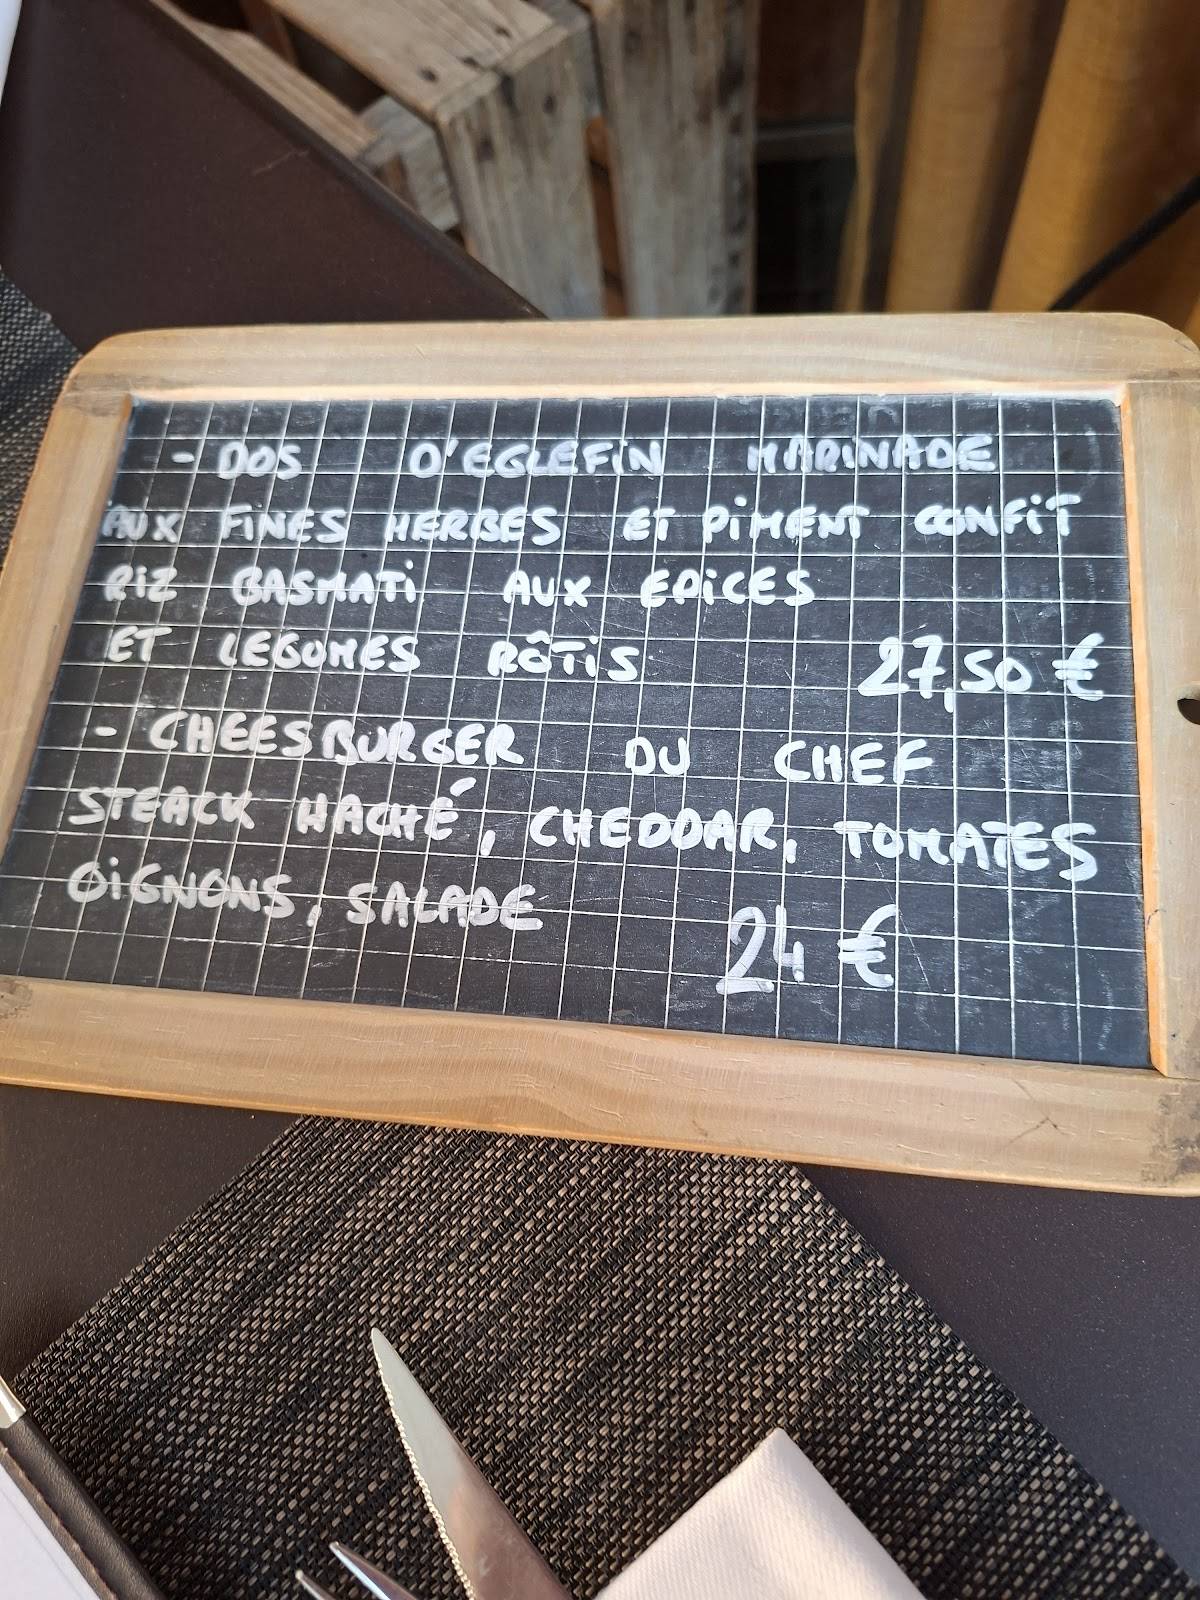 - DOS D'EGLEFIN MARINADE
AUX FINES HERBES ET PIMENT CONFIT
RIZ BASMATI AUX EPICES
ET LEGUMES RÔTIS 27,50 €
- CHEESBURGER DU CHEF
STEACK HACHÉ, CHEDDAR, TOMATES
OIGNONS, SALADE 24 €